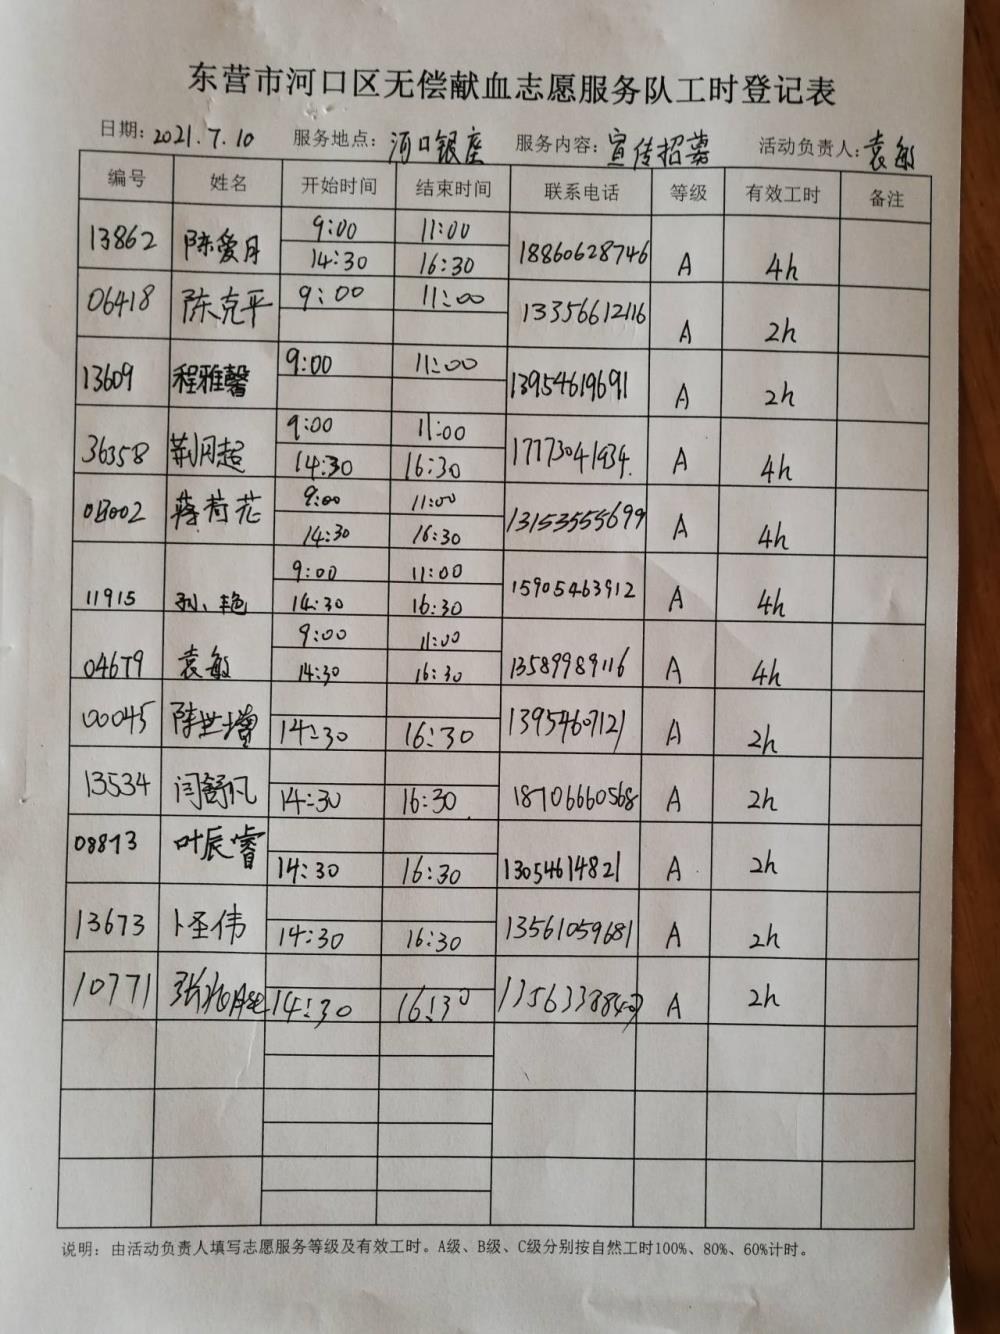 东营市河口区无偿献血志愿服务队工时登记表
日期: 2021.7.10 服务地点: 河口银座 服务内容: 宣传招募 活动负责人: 袁敏
编号 姓名 开始时间 结束时间 联系电话 等级 有效工时 备注
13862 陈爱月 9:00 11:00 18860628746 A 4h
14:30 16:30
06418 陈克平 9:00 11:00 13356612116 A 2h
13609 程雅馨 9:00 11:00 13954619691 A 2h
36358 荆月超 9:00 11:00 17173041934 A 4h
14:30 16:30
蒋荷花 9:00 11:00 13153555699 A 4h
14:30 16:30
11915 孙艳 9:00 11:00 15905463912 A 4h
14:30 16:30
04679 袁敏 9:00 11:00 13589989116 A 4h
14:30 16:30
00045 陈世增 14:30 16:30 13954607121 A 2h
13534 闫舒凡 14:30 16:30 18706660568 A 2h
08813 叶辰睿 14:30 16:30 13054614821 A 2h
13673 卜圣伟 14:30 16:30 13561059681 A 2h
10771 14:30 16:30 A 2h
说明: 由活动负责人填写志愿服务等级及有效工时。A级、B级、C级分别按自然工时100%、80%、60%计时。